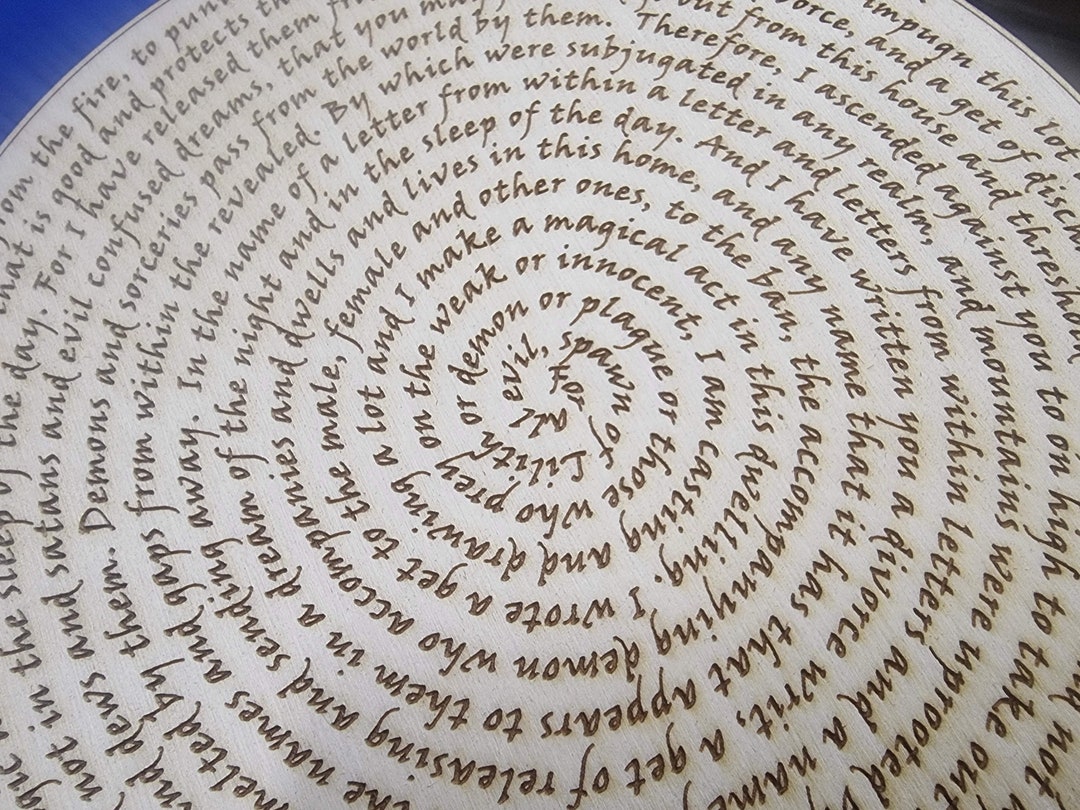 For all evil, spawn of Lilith or demon or plague or those who prey on the weak or innocent, I am casting and drawing a lot and I make a magical act in this dwelling. I wrote a get to the male, female and other ones, to the ban, the accompanying demon who accompanies and dwells and lives in this home, and any name that it has that appears to them in a dream of the night and in the sleep of the day. And I have written you a divorce writ, a get of releasing and sending away. In the name of a letter from within a letter and letters from within letters and a name
the names and gaps from within the revealed. By which were subjugated in any realm, and mountains were uprooted
melted by them. Demons and sorceries pass from the world by them. Therefore, I ascended against you to on high to take
and satans and evil confused dreams, that you may
out from this house and threshold
not in the sleep of the day. For I have released them
and a get of
that is good and protects
impugn this lot
the fire, to